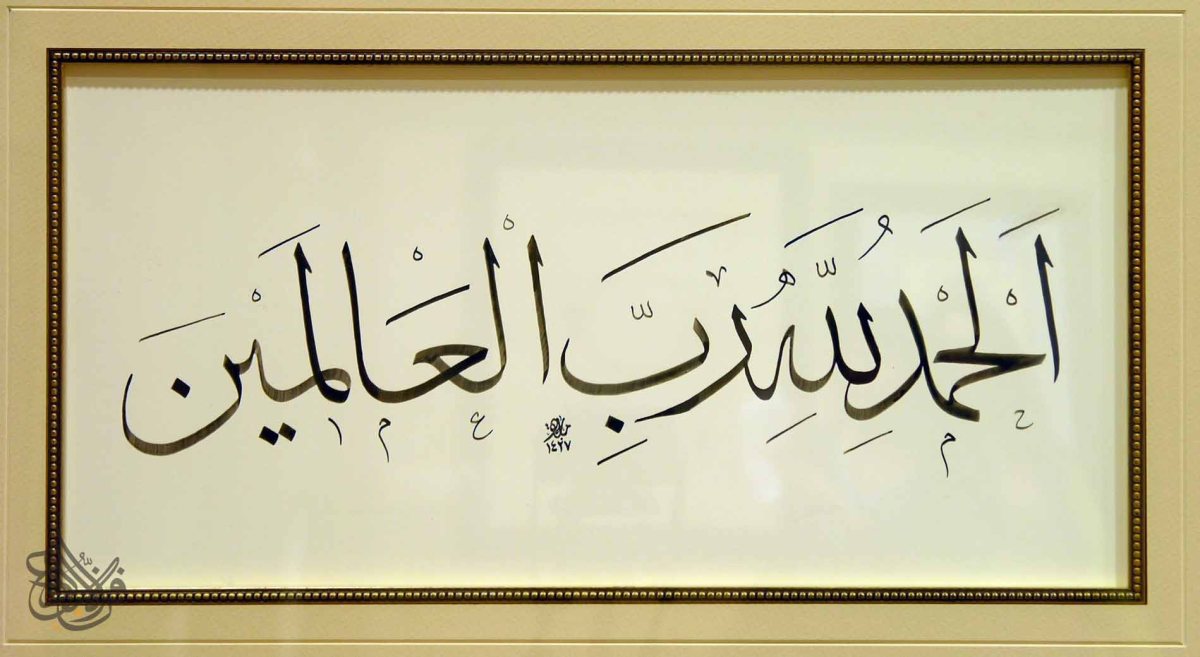 اَلْحَمْدُ لِلّٰهِ رَبِّ الْعَالَمِينَ
١٤٢٧